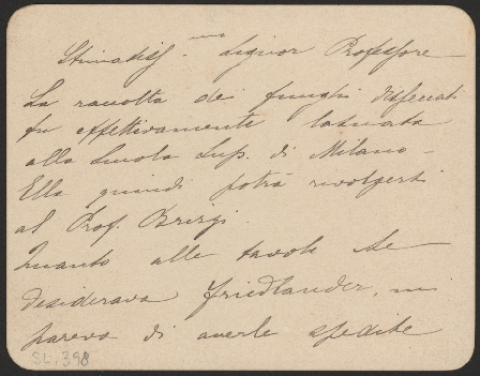 Stimatiss.mo Signor Professore
La raccolta dei funghi disseccati
fu effettivamente lasciata
alla Scuola Sup. di Milano –
Ella quindi potrà rivolgersi
al Prof. Brizi.
Quanto alle tavole che
desiderava Friedländer, mi
pareva di averle spedite
SL. 398